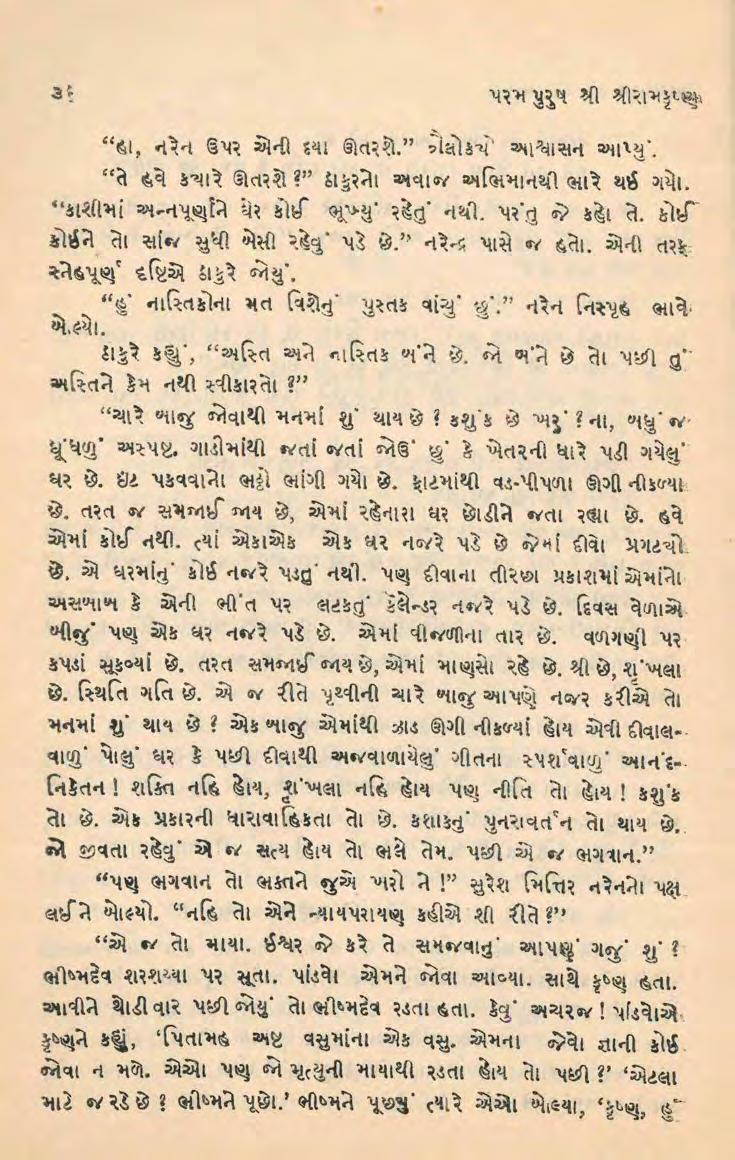 ૩૬ પરમ પુરુષ શ્રી શ્રીરામકૃષ્ણ
“હા, નરેન ઉપર એની દયા ઊતરશે.” ત્રૈલોક્યે આશ્વાસન આપ્યું.
“તે હવે કયારે ઊતરશે ?” ઠાકુરનો અવાજ અભિમાનથી ભારે થઈ ગયો.
“કાશીમાં અન્નપૂર્ણાને ઘેર કોઈ ભૂખ્યું રહેતું નથી. પરંતુ જે કહો તે. કોઈ
કોઈને તો સાંજ સુધી બેસી રહેવું પડે છે.” નરેન્દ્ર પાસે જ હતો. એની તરફ
સ્નેહપૂર્ણ દૃષ્ટિએ ઠાકુરે જોયું.
“હું નાસ્તિકોના મત વિશેનું પુસ્તક વાંચું છું.” નરેન નિસ્પૃહ ભાવે
બોલ્યો.
ઠાકુરે કહ્યું, “અસ્તિ અને નાસ્તિક બંને છે. જો બંને છે તો પછી તું
અસ્તિને કેમ નથી સ્વીકારતો ?”
“ચારે બાજુ જોવાથી મનમાં શું થાય છે ? કશુંક છે ખરું ? ના, બધું જ
ધૂંધળું અસ્પષ્ટ. ગાડીમાંથી જતાં જતાં જોઉં છું કે ખેતરની ધારે પડી ગયેલું
ઘર છે. ઇંટ પકવવાનો ભઠ્ઠો ભાંગી ગયો છે. ફાટમાંથી વડ-પીપળા ઊગી નીકળ્યા
છે. તરત જ સમજાઈ જાય છે, એમાં રહેનારા ઘર છોડીને જતા રહ્યા છે. હવે
એમાં કોઈ નથી. ત્યાં એકાએક એક ઘર નજરે પડે છે જેમાં દીવો પ્રગટયો
છે. એ ઘરમાંનું કોઈ નજરે પડતું નથી. પણ દીવાના તીરછા પ્રકાશમાં એમાંનો
અસબાબ કે એની ભીંત પર લટકતું કેલેન્ડર નજરે પડે છે. દિવસ વેળાએ
બીજું પણ એક ઘર નજરે પડે છે. એમાં વીજળીના તાર છે. વળગણી પર
કપડાં સૂકવ્યાં છે. તરત સમજાઈ જાય છે, એમાં માણસો રહે છે. શ્રી છે, શૃંખલા
છે. સ્થિતિ ગતિ છે. એ જ રીતે પૃથ્વીની ચારે બાજુ આપણે નજર કરીએ તો
મનમાં શું થાય છે ? એક બાજુ એમાંથી ઝાડ ઊગી નીકળ્યાં હોય એવી દીવાલ-
વાળું પોલું ઘર કે પછી દીવાથી અજવાળાયેલું ગીતના સ્પર્શવાળું આનંદ-
નિકેતન ! શક્તિ નહિ હોય, શૃંખલા નહિ હોય પણ નીતિ તો હોય ! કશુંક
તો છે. એક પ્રકારની ધારાવાહિકતા તો છે. કશાકનું પુનરાવર્તન તો થાય છે.
જો જીવતા રહેવું એ જ સત્ય હોય તો ભલે તેમ. પછી એ જ ભગવાન.”
“પણ ભગવાન તો ભક્તને જુએ ખરો ને !” સુરેશ મિત્તિર નરેનનો પક્ષ
લઈને બોલ્યો. “નહિ તો એને ન્યાયપરાયણ કહીએ શી રીતે ?”
“એ જ તો માયા. ઈશ્વર જે કરે તે સમજવાનું આપણું ગજું શું ?
ભીષ્મદેવ શરશય્યા પર સૂતા. પાંડવો એમને જોવા આવ્યા. સાથે કૃષ્ણ હતા.
આવીને થોડી વાર પછી જોયું તો ભીષ્મદેવ રડતા હતા. કેવું અચરજ ! પાંડવોએ
કૃષ્ણને કહ્યું, ‘પિતામહ અષ્ટ વસુમાંના એક વસુ. એમના જેવો જ્ઞાની કોઈ
જોવા ન મળે. એઓ પણ જો મૃત્યુની માયાથી રડતા હોય તો પછી ?’ ‘એટલા
માટે જ રડે છે ? ભીષ્મને પૂછો.’ ભીષ્મને પૂછ્યું ત્યારે એઓ બોલ્યા, ‘કૃષ્ણ, હું